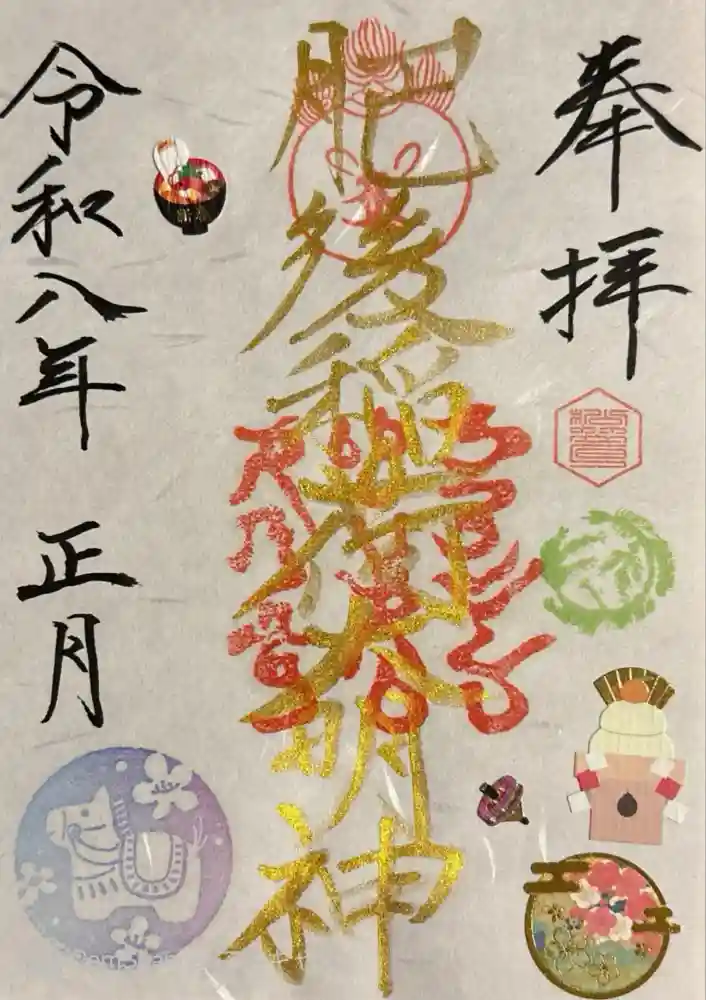 奉拝
肥後稲荷大明神
令和八年 正月